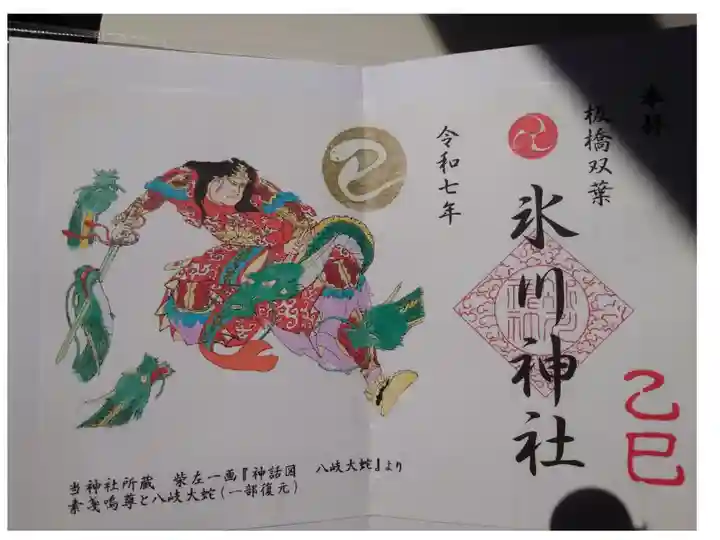 奉拝
板橋双葉
氷川神社
乙巳
令和七年
当神社所蔵　柴左一画『神話図　八岐大蛇』より
素戔嗚尊と八岐大蛇(一部復元)